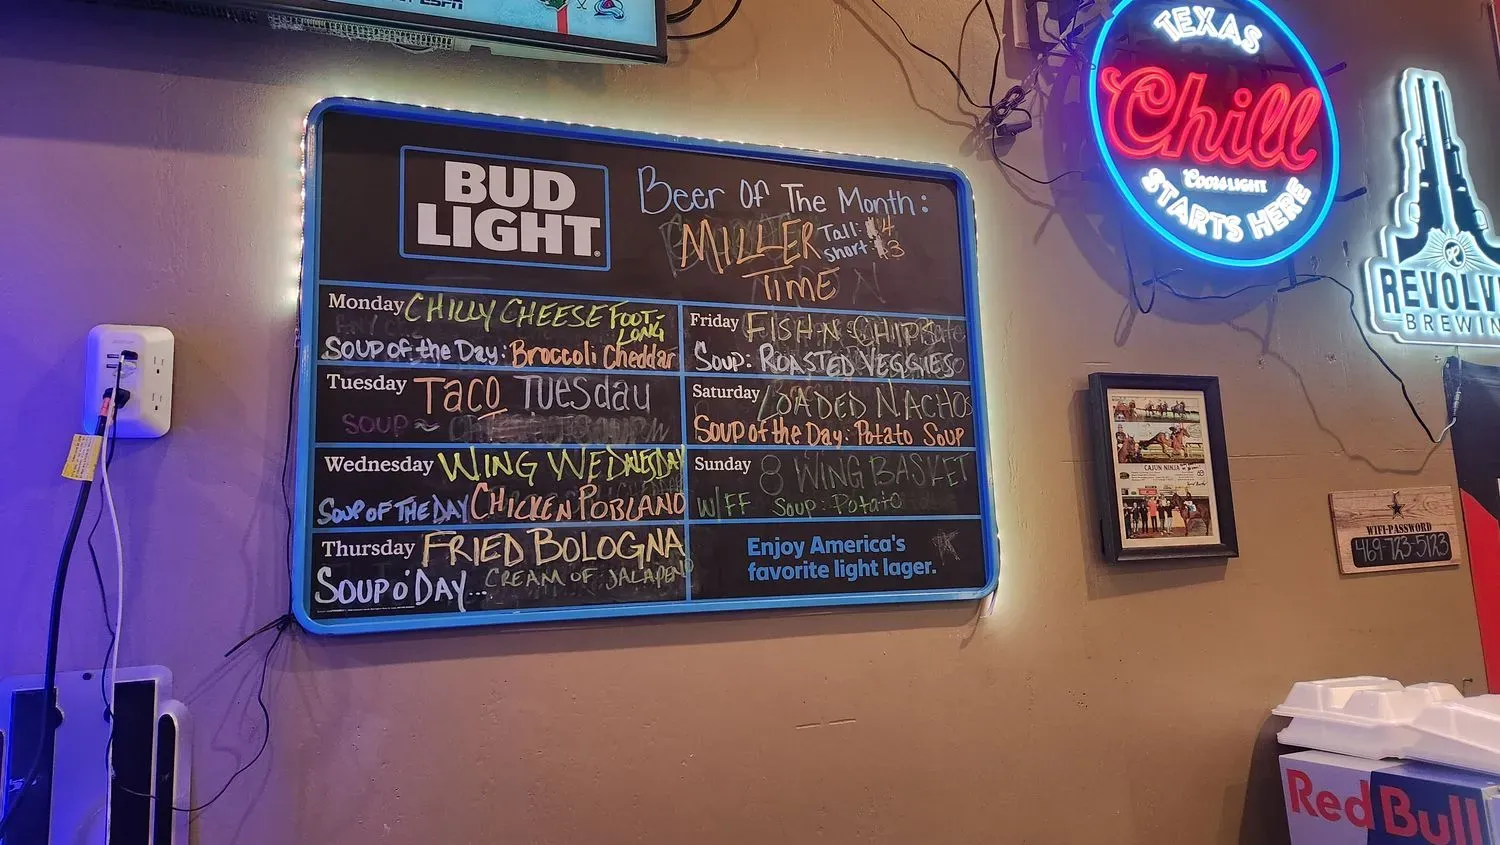 ESPN
BUD
LIGHT
Beer Of The Month:
MILLER
Tall: $4
Short: $3
TIME
Monday CHILLY CHEESE FOOT-
LONG
SOUP OF the DAY: BROCCOLI CHEDDAR
Tuesday TACO TUESDAY
SOUP ~
Wednesday WING WEDNESDAY
SOUP OF THE DAY CHICKEN POBLANO
Thursday FRIED BOLOGNA
SOUP O' DAY... CREAM OF JALAPENO
Friday FISH N CHIPS
SOUP: ROASTED VEGGIES
Saturday LOADED NACHOS
SOUP of the DAY: POTATO SOUP
Sunday 8 WING BASKET
W/FF Soup: Potato
Enjoy America's
favorite light lager.
TEXAS
Chill
COORS LIGHT
STARTS HERE
R
REVOLV
BREWIN
CAJUN NINJA
WIFI-PASSWORD
469-723-5123
Red Bull